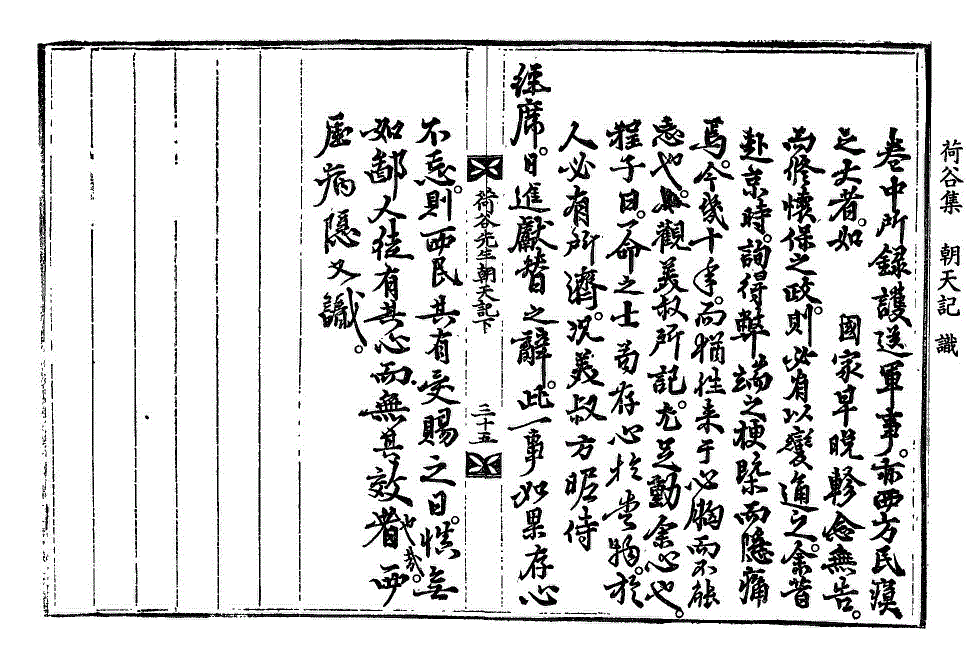 荷谷集　朝天記　識
卷中所錄護送軍事。亦西方民瘼
之大者。如　　國家早晩軫念無告。
而修懷保之政。則必有以變通之。余昔
赴京時。詢得弊端之梗槩。而隱痛
焉。今幾十年。而猶往來于心胸而不能
忘也。觀美叔所記。尤足動余心也。
程子曰。一命之士苟存心於愛物。於
人必有所濟。况美叔方昵侍
經席。日進獻替之辭。此一事如果存心
荷谷先生朝天記下　三十五
不忘。則西民其有受賜之日。愼無
如鄙人徒有其心而無其效者也哉。西
厓病隱又識。